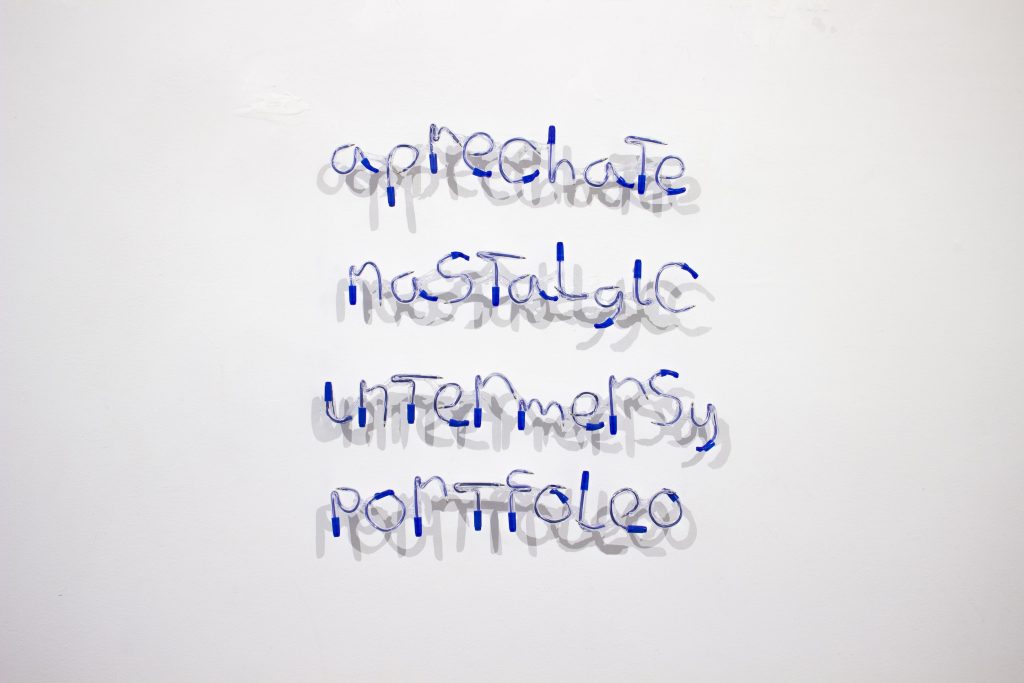 aprechate
nastalgic
intermersy
portfoleo